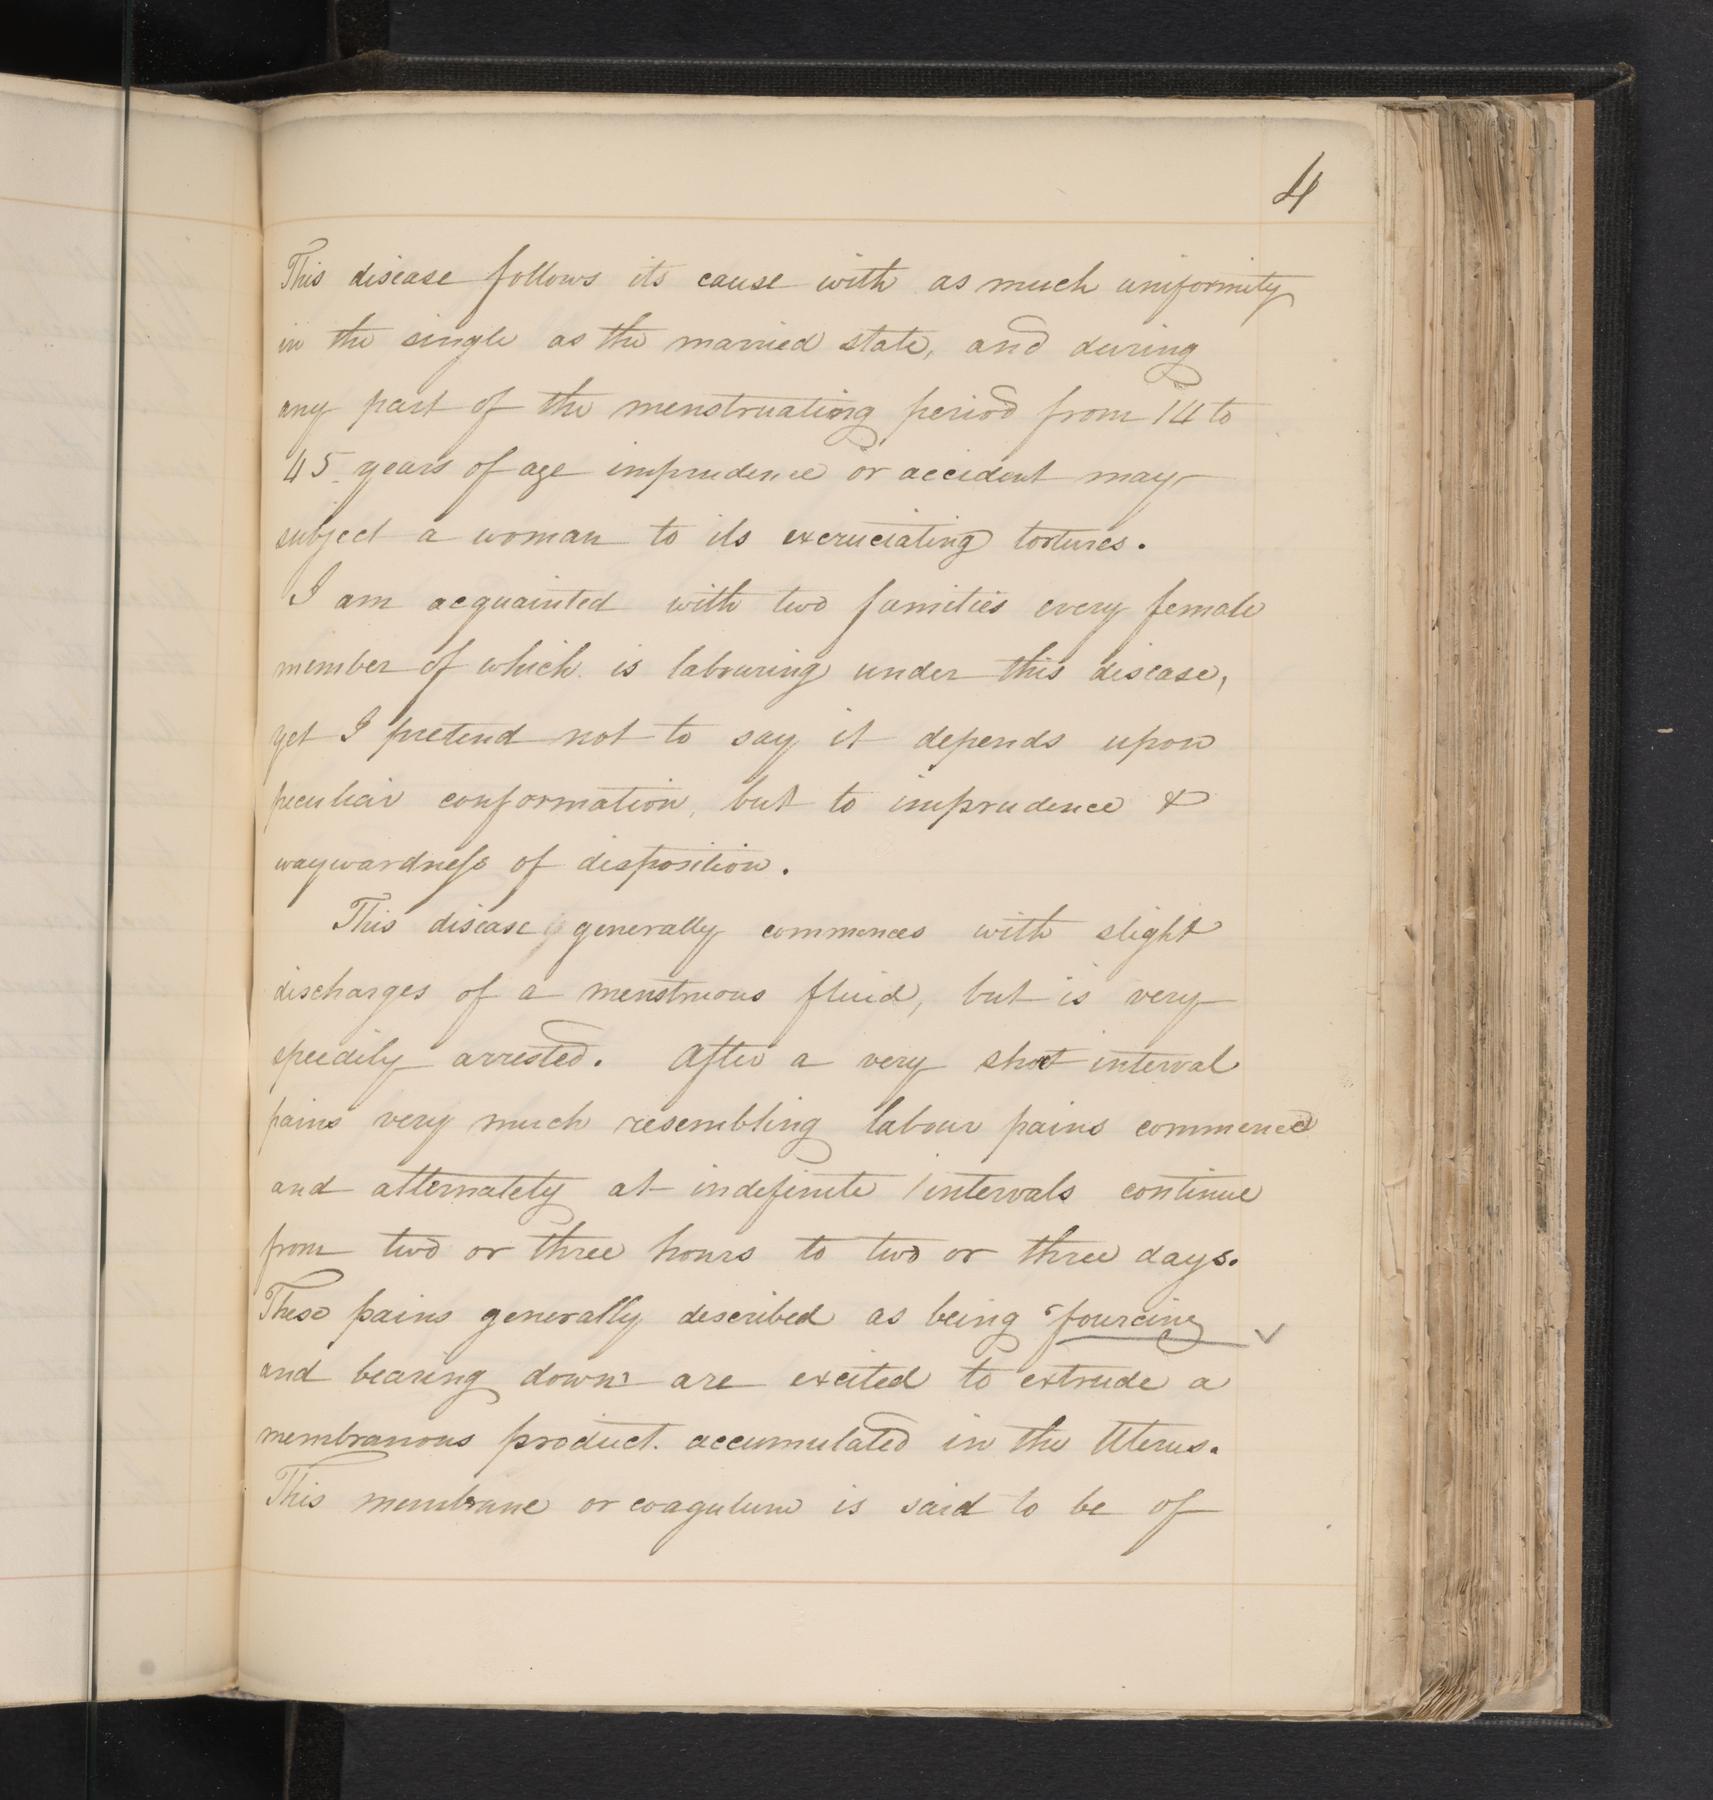 4
This disease follows its cause with as much uniformity
in the single as the married state, and during
any part of the menstruating period from 14 to
45 years of age imprudence or accident may
subject a woman to its excruciating tortures.
I am acquainted with two families every female
member of which is labouring under this disease,
yet I pretend not to say it depends upon
peculiar conformation, but to imprudence &
waywardness of disposition.
This disease generally commences with slight
discharges of a menstruous fluid, but is very
speedily arrested. After a very short interval
pains very much resembling labour pains commence
and alternately at indefinite intervals continue
from two or three hours to two or three days.
These pains generally described as being "fourcing
and bearing down" are excited to extrude a
membranous product accumulated in the Uterus.
This membrane or coagulum is said to be of